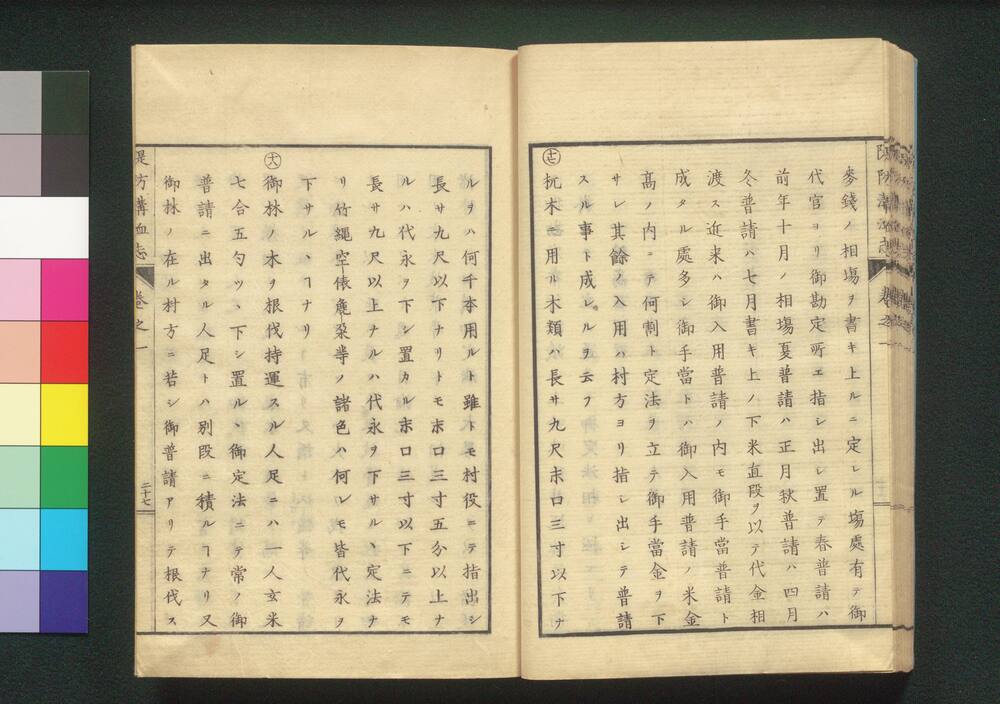 麥錢ノ相塲ヲ書キ上ルニ定レル塲處有テ御
代官ヨリ御勘定所エ指シ出シ置テ春普請ハ
前年十月ノ相塲夏普請ハ正月秋普請ハ四月
冬普請ハ七月書キ上ノ下米直段ヲ以テ代金相
渡ス近来ハ御入用普請ノ内モ御手當普請ト
成タル處多シ御手當トハ御入用普請ノ米金
髙ノ内ニテ何割ト定法ヲ立テ御手當金ヲ下
サレ其餘ノ入用ハ村方ヨリ指シ出シテ普請
スル事ト成レルヲ云フ
杭木ニ用ル木類ハ長サ九尺末口三寸以下ナ
ルヲハ何千本用ルト雖トモ村役ニテ指出シ
長サ九尺以下ナリトモ末口三寸五分以上ナ
ルハ代永ヲ下シ置カル末口三寸以下ニテモ
長サ九尺以上ナルハ代永ヲ下サルヽ定法ナ
リ竹縄空俵麁朶等ノ諸色ハ何レモ皆代永ヲ
下サルヽヿナリ
御林ノ木ヲ根伐持運スル人足ニハ一人玄米
七合五勺ツヽ下シ置ルヽ御定法ニテ常ノ御
普請ニ出タル人足トハ別段ニ積ルヿナリ又
御林ノ在ル村方ニ若シ御普請アリテ根伐ス
堤方溝洫志
巻之一
二十七